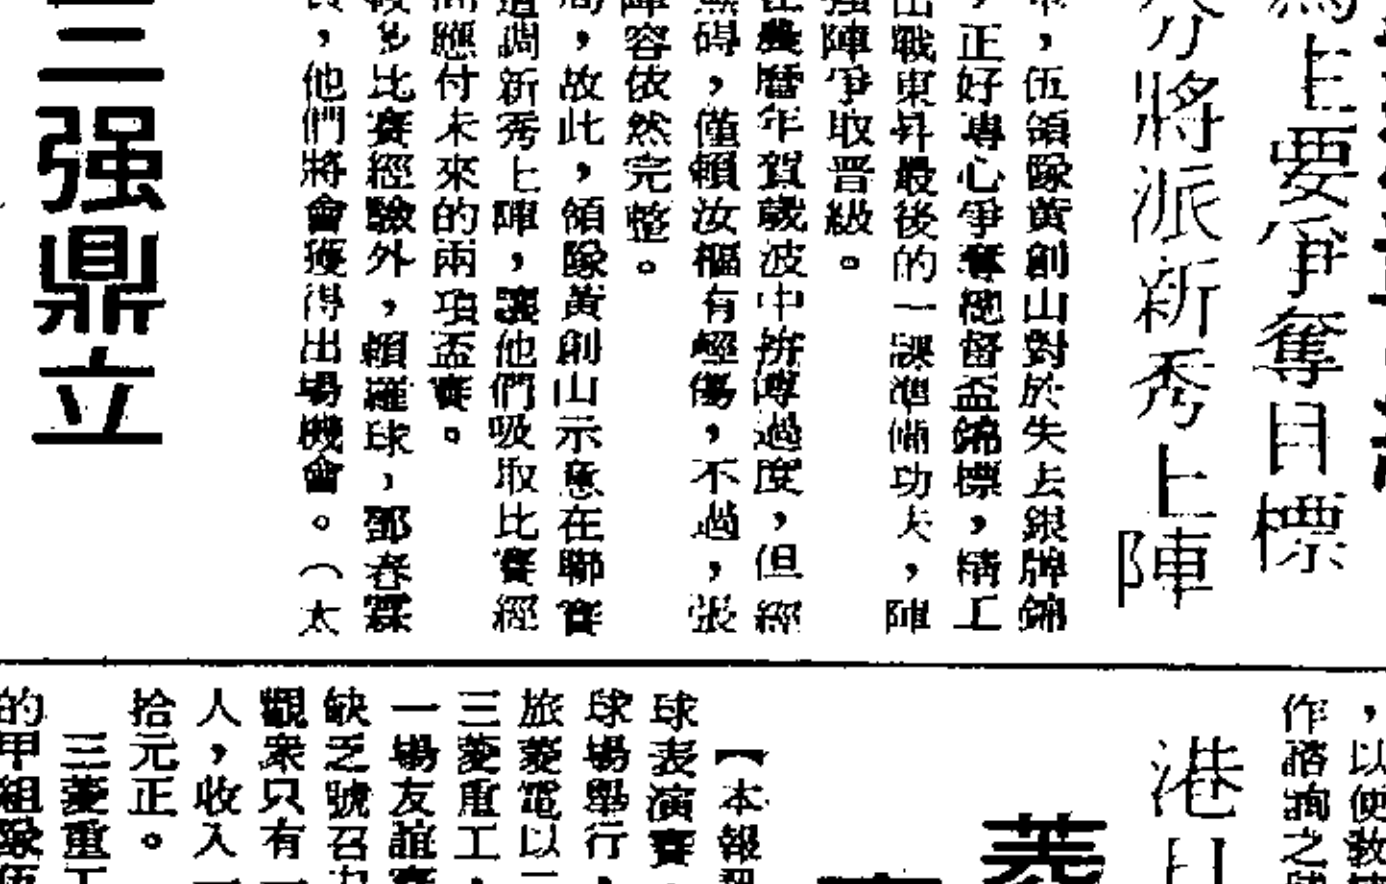 馬上要爭奪目標
將派新秀上陣
，伍領隊黃創山對於失去銀牌錦
，正好專心爭奪總督盃錦標，精工
出戰東昇最後的一課準備功夫，陣
强陣爭取晋級。
在農曆年賀歲波中拚搏過度，但經
無碍，僅賴汝樞有輕傷，不過，張
陣容依然完整。
，故此，領隊黃創山示意在聯賽
遣調新秀上陣，讓他們吸取比賽經
應付未來的兩項盃賽。
較多比賽經驗外，賴羅球，鄧春霖
，他們將會獲得出場機會。（太
三强鼎立
，以便教
作諮詢之
港
菱
【本報
球表演賽，
球場舉行，
旅菱電以
三菱重工，
一場友誼賽
缺乏號召力
觀衆只有一
人，收入一
拾元正。
三菱重工
的甲組隊伍